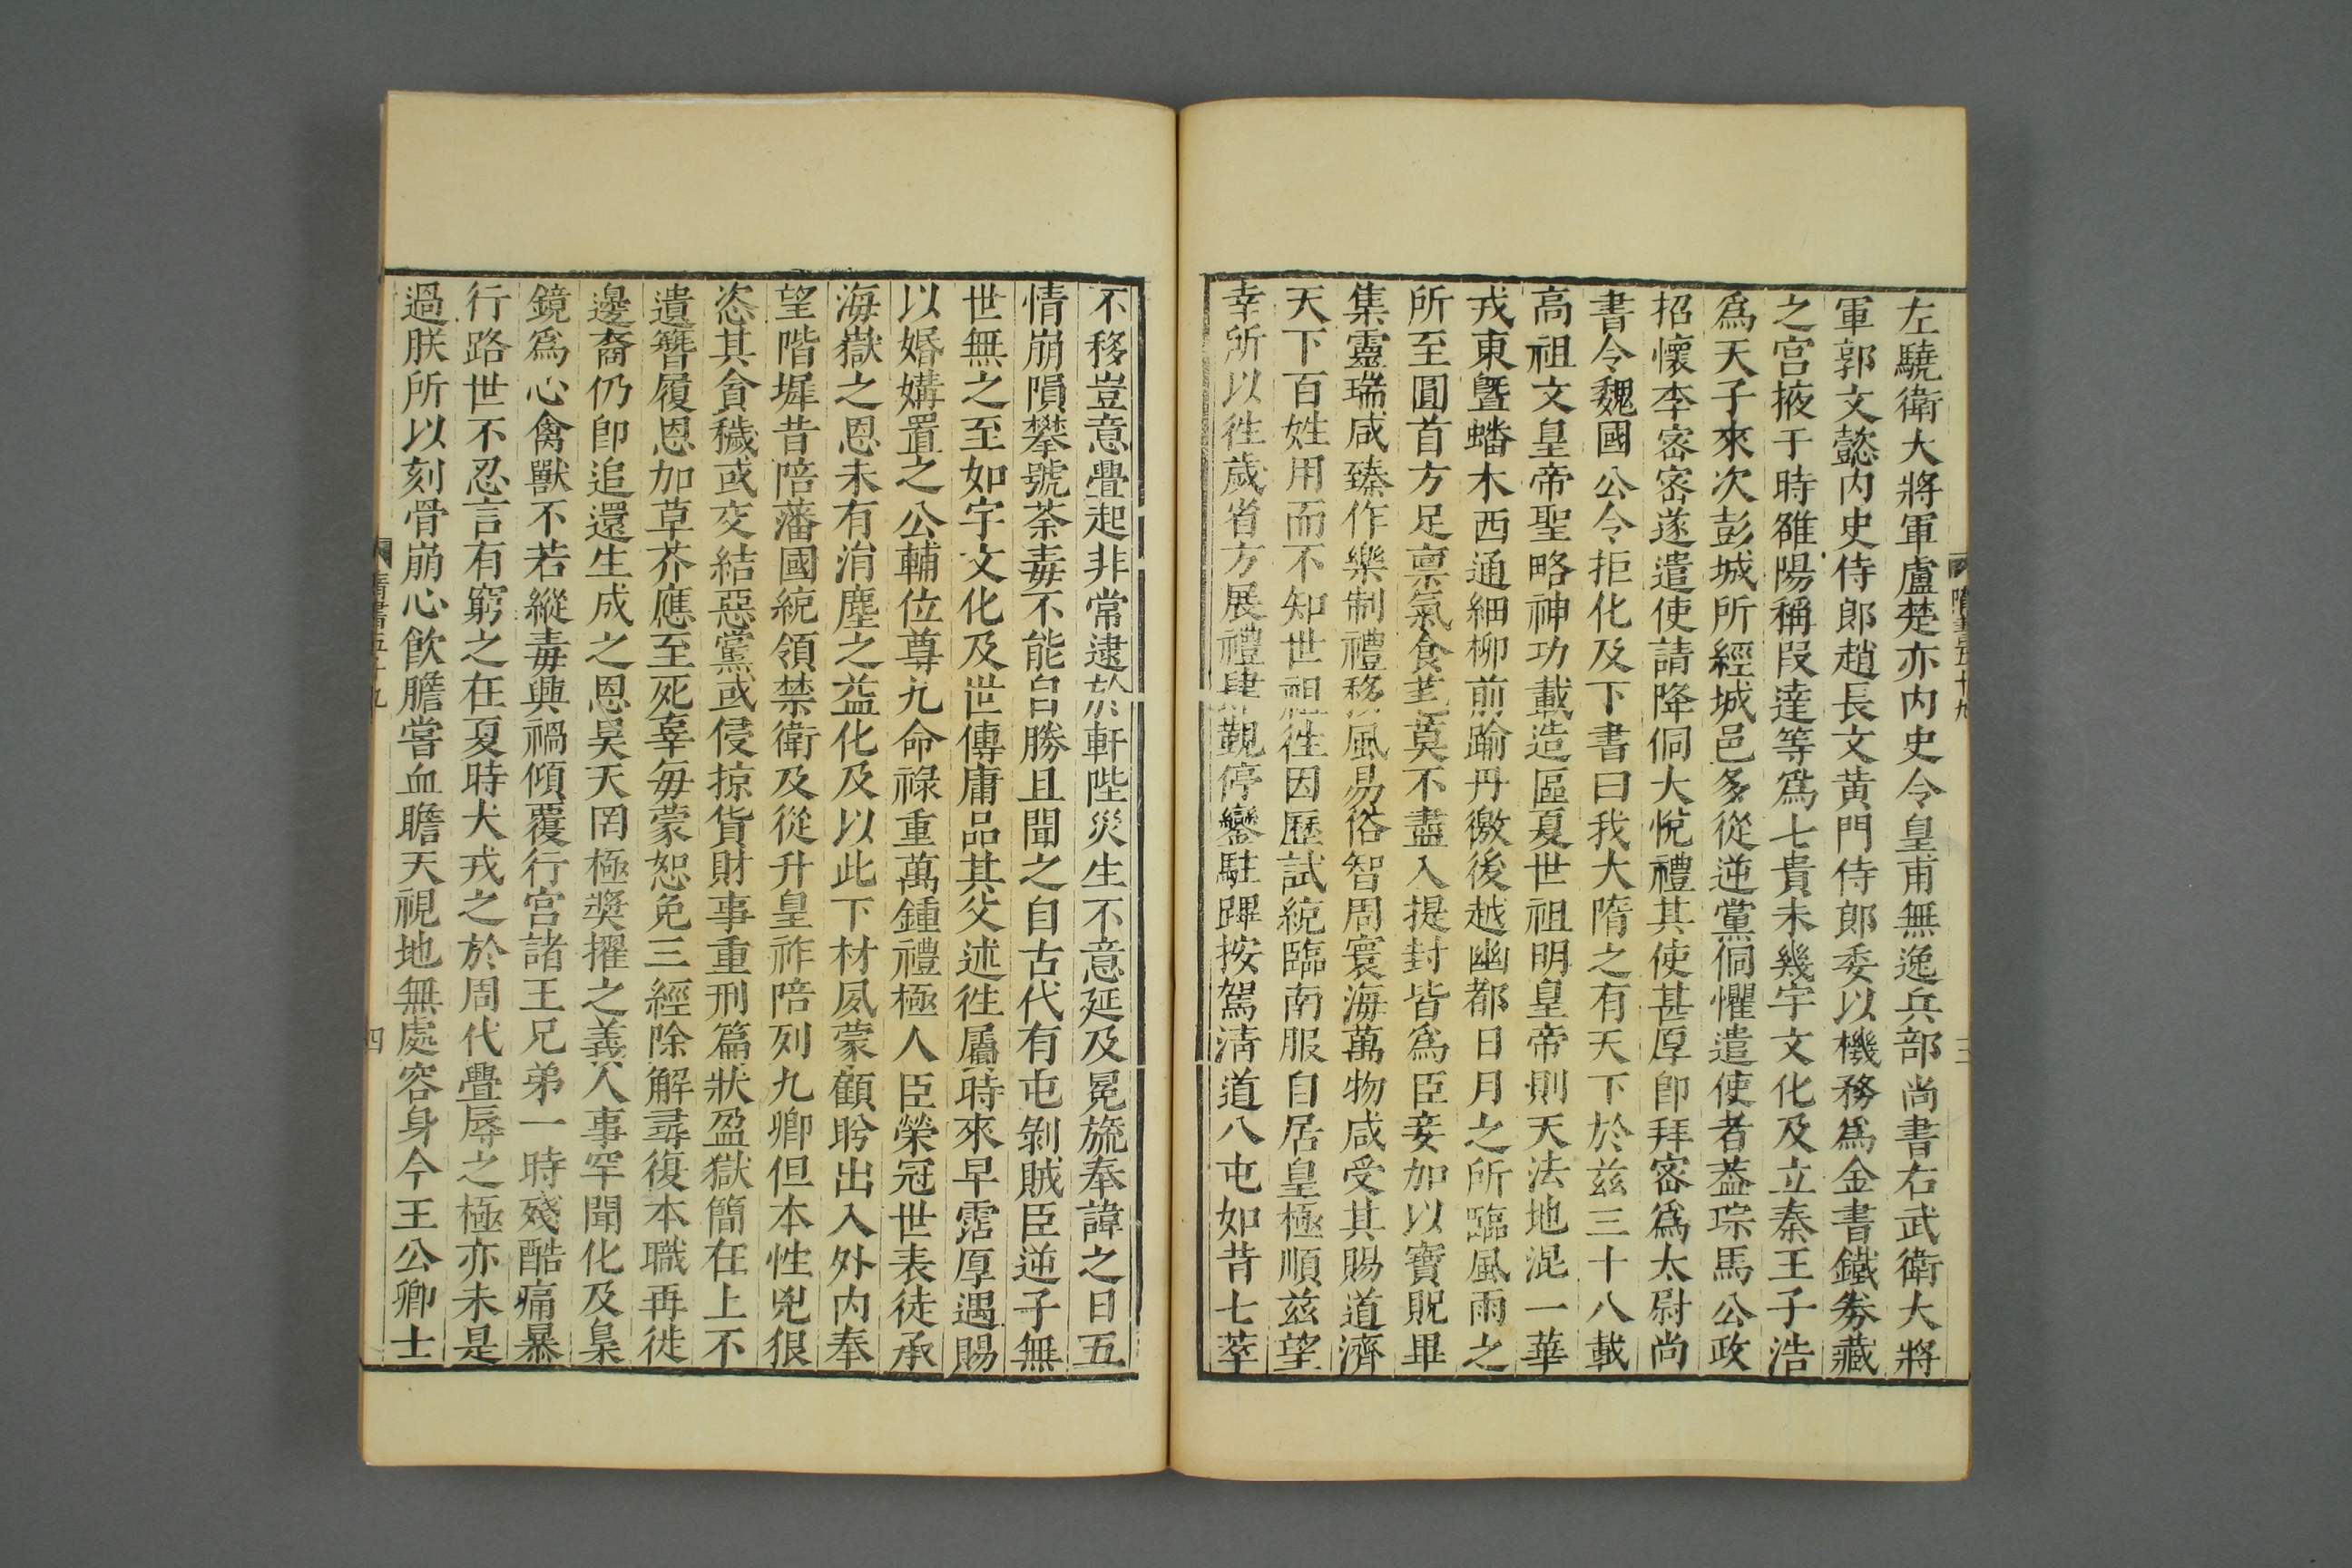 左驍衛大將軍盧楚亦内史令皇甫無逸兵部尚書右武衛大將
軍郭文懿内史侍郎趙長文黄門侍郎委以機務爲金書鐵券藏
之宫掖于時雒陽稱段達等爲七貴未幾宇文化及立秦王子浩
爲天子來次彭城所經城邑多從逆黨侗懼遣使者葢琮馬公政
招懷李宻宻遂遣使請降侗大悅禮其使甚厚卽拜宻爲太尉尚
書令魏國公令拒化及下書曰我大隋之有天下於兹三十八載
高祖文皇帝聖略神功載造區夏世祖明皇帝則天法地混一華
戎東暨蟠木西通細柳前踰丹徼後越幽都日月之所臨風雨之
所至圓首方足禀氣食芼莫不盡入提封皆爲臣妾加以寶貺畢
集靈瑞咸臻作樂制禮移風易俗智周寰海萬物咸受其賜道濟
天下百姓用而不知世祖徃因歷試統臨南服自居皇極順兹望
幸所以徃歲省方展禮肆覲停鑾駐蹕按駕淸道八屯如昔七萃
隋書五十九
三
不移豈意疊起非常逮於軒陛災生不意延及冕旒奉諱之日五
情崩隕攀號荼毒不能自勝且聞之自古代有屯剝賊臣逆子無
世無之至如宇文化及世傳庸品其父述徃屬時來早霑厚遇賜
以婚媾置之公輔位尊九命禄重萬鍾禮極人臣榮冠世表徒承
海嶽之恩未有涓塵之益化及以此下材夙蒙顧盻出入外内奉
望階墀昔陪藩國統領禁衛及從升皇祚陪列九卿但本性兇狠
恣其貪穢或交結惡黨或侵掠貨財事重刑篇狀盈獄簡在上不
遺簪履恩加草芥應至死辜每蒙恕免三經除解尋復本職再徙
邊裔仍卽追還生成之恩昊天罔極奬擢之義人事罕聞化及梟
鏡爲心禽獸不若縱毒興禍傾覆行宫諸王兄弟一時殘酷痛暴
行路世不忍言有窮之在夏時犬戎之於周代疊辱之極亦未是
過朕所以刻骨崩心飮膽嘗血瞻天視地無處容身今王公卿士
隋書五十九
四